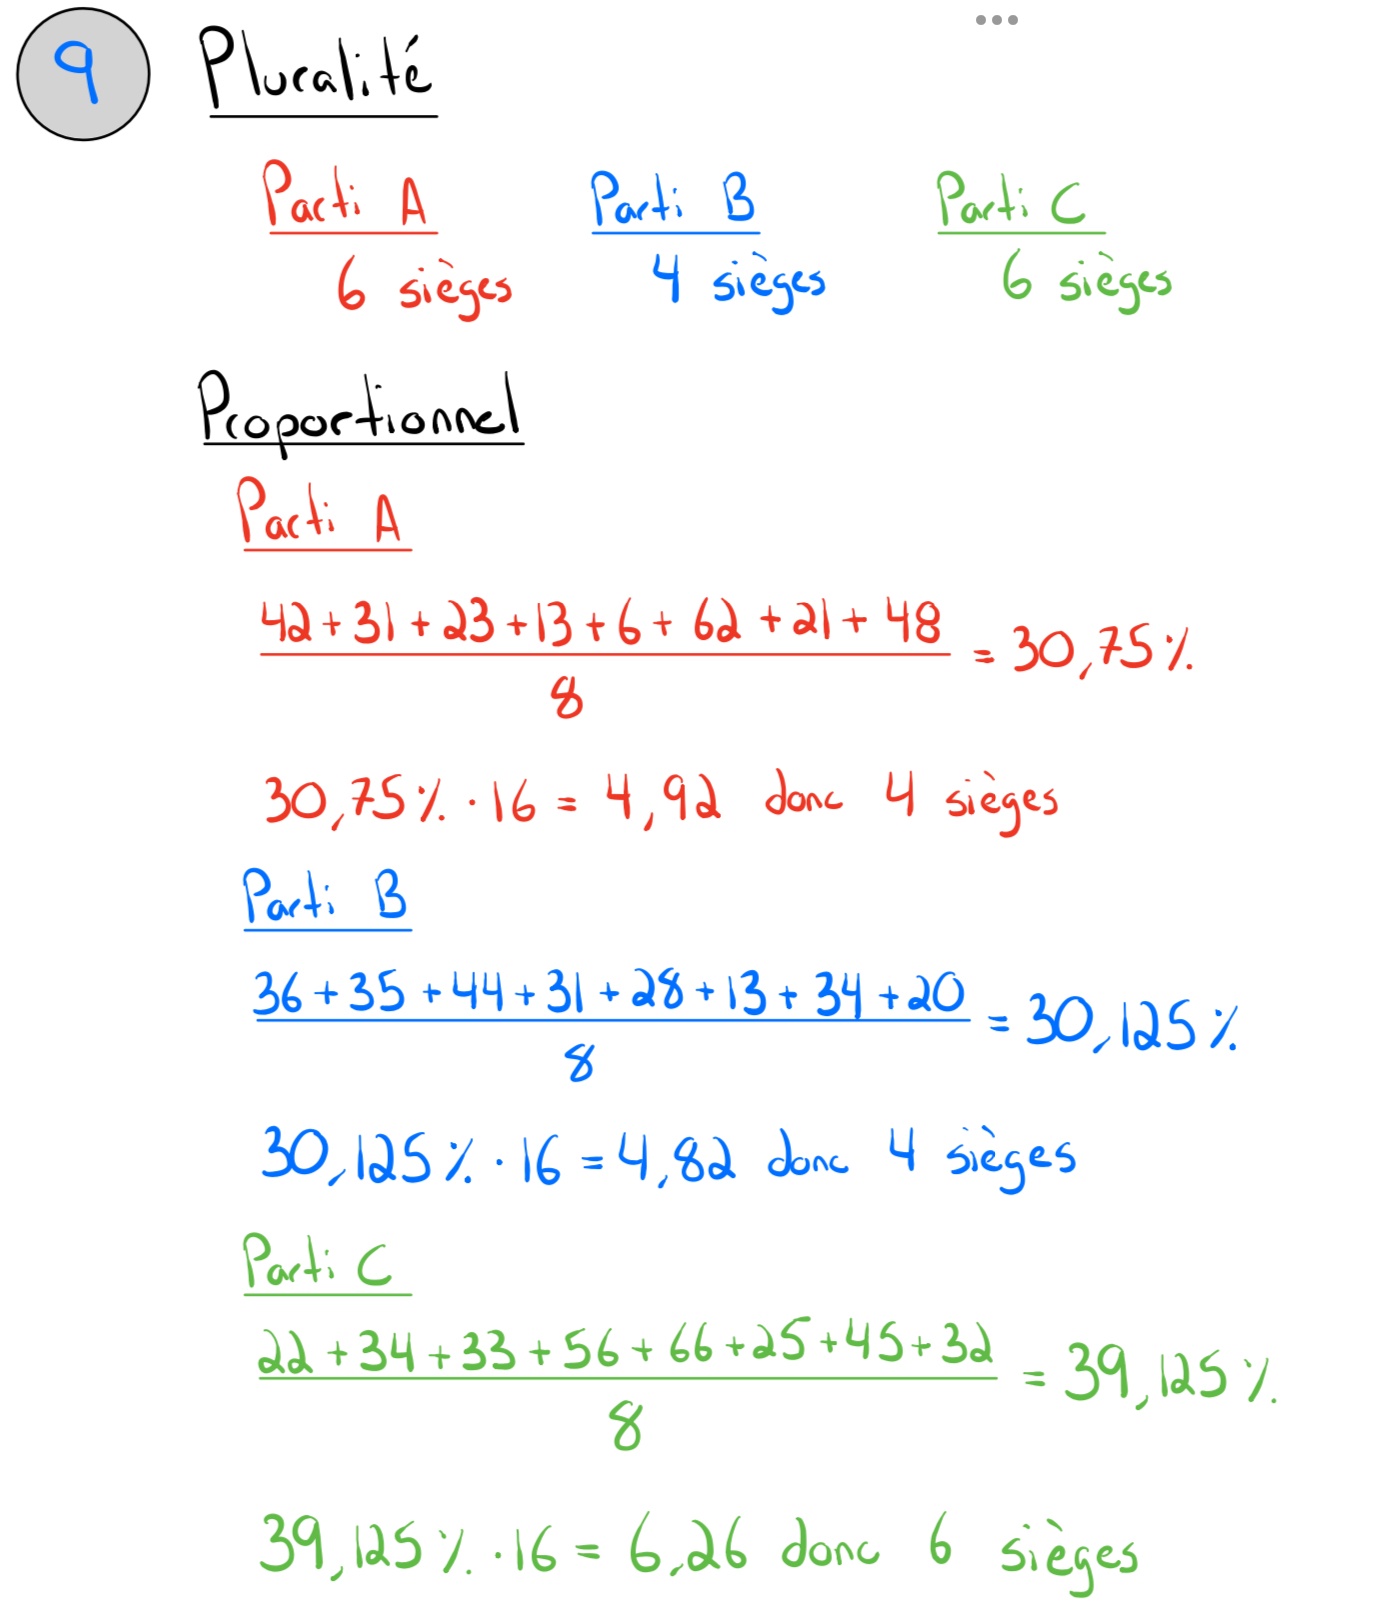 9 Pluralité
Parti A Parti B Parti C
6 sièges 4 sièges 6 sièges
Proportionnel
Parti A
42 + 31 + 23 + 13 + 6 + 62 + 21 + 48
8
= 30,75 %
30,75 % · 16 = 4,92 donc 4 sièges
Parti B
36 + 35 + 44 + 31 + 28 + 13 + 34 + 20
8
= 30,125 %
30,125 % · 16 = 4,82 donc 4 sièges
Parti C
22 + 34 + 33 + 56 + 66 + 25 + 45 + 32
8
= 39,125 %
39,125 % · 16 = 6,26 donc 6 sièges